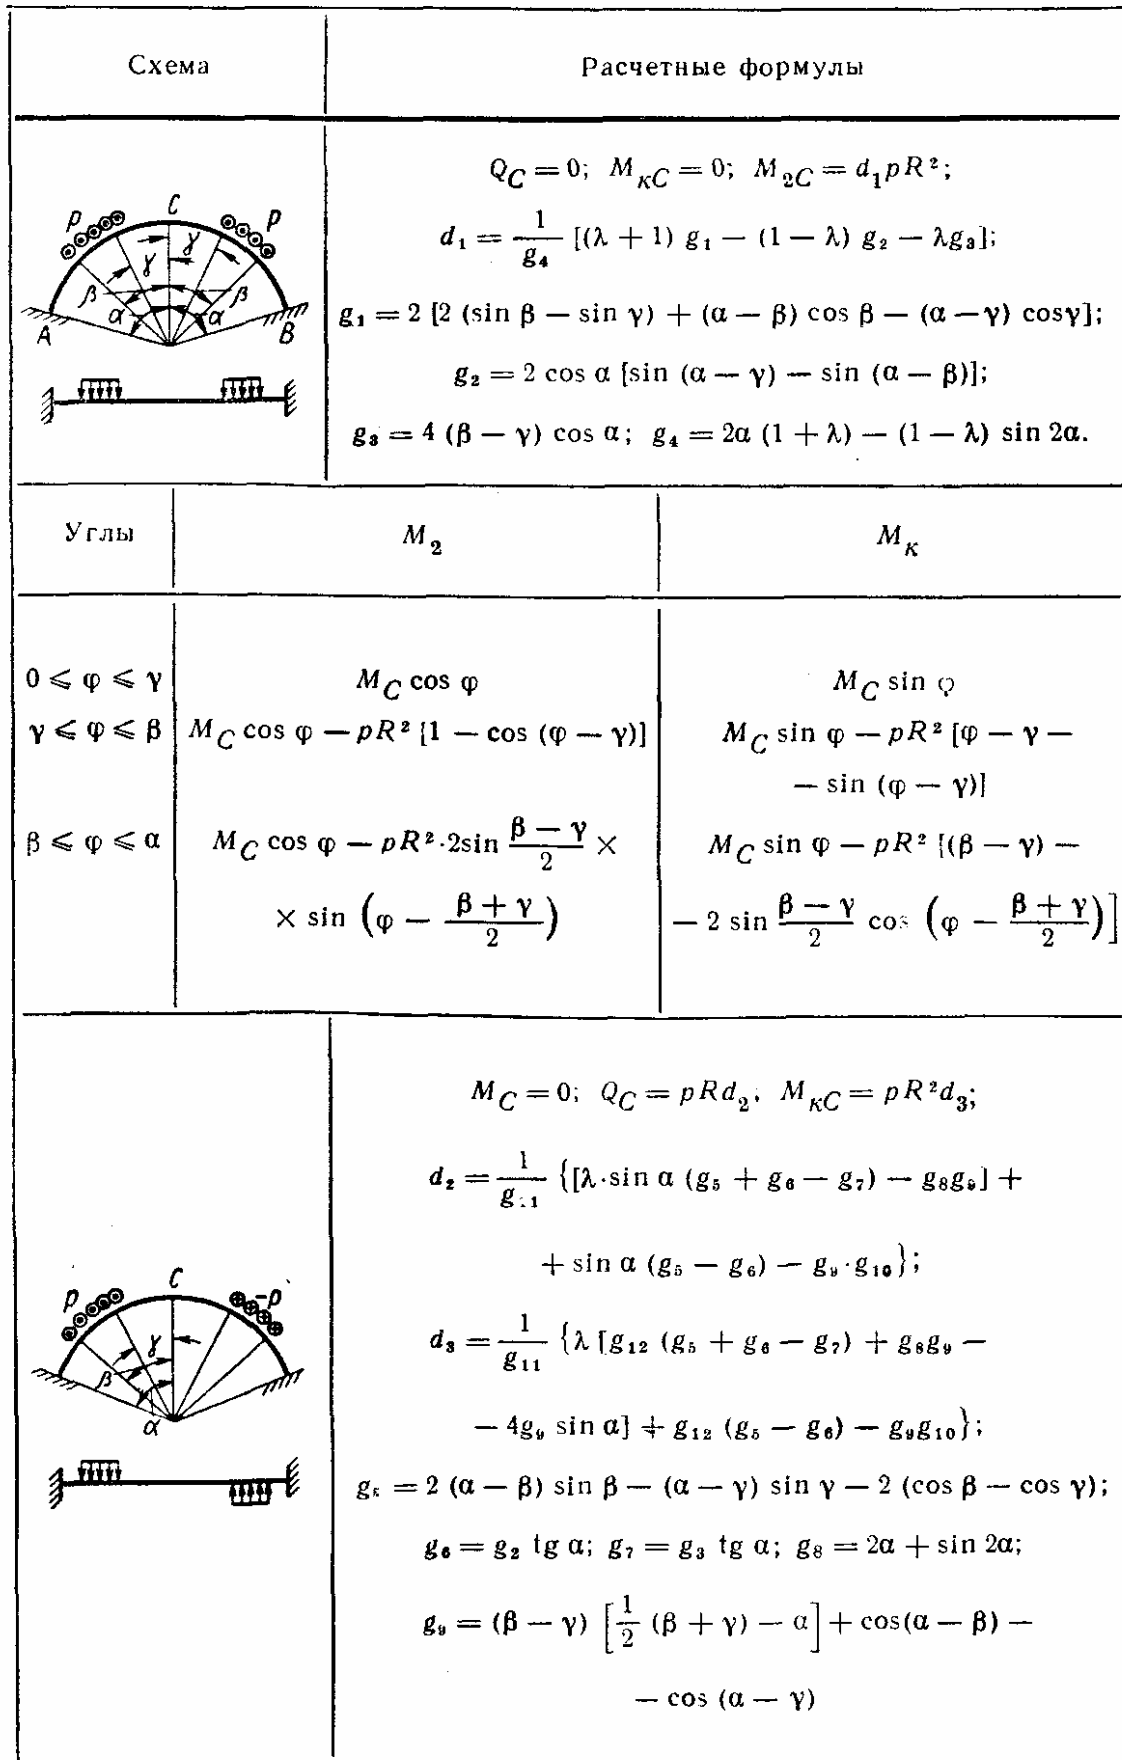 Схема Расчетные формулы
Q_C = 0; M_кC = 0; M_2C = d_1 pR²;
d_1 = 1/g_4 [(λ + 1) g_1 − (1 − λ) g_2 − λg_3];
g_1 = 2 [2 (sin β − sin γ) + (α − β) cos β − (α − γ) cosγ];
g_2 = 2 cos α [sin (α − γ) − sin (α − β)];
g_3 = 4 (β − γ) cos α; g_4 = 2α (1 + λ) − (1 − λ) sin 2α.
p C p
γ γ
β β
α α
A B
Углы M_2 M_к
0 ⩽ φ ⩽ γ M_C cos φ M_C sin φ
γ ⩽ φ ⩽ β M_C cos φ − pR² [1 − cos (φ − γ)] M_C sin φ − pR² [φ − γ −
− sin (φ − γ)]
β ⩽ φ ⩽ α M_C cos φ − pR²·2sin (β − γ)/2 × M_C sin φ − pR² [(β − γ) −
× sin (φ − (β + γ)/2) − 2 sin (β − γ)/2 cos (φ − (β + γ)/2)]
M_C = 0; Q_C = pRd_2; M_кC = pR²d_3;
d_2 = 1/g_11 {[λ·sin α (g_5 + g_6 − g_7) − g_8g_9] +
+ sin α (g_5 − g_6) − g_9·g_10};
d_3 = 1/g_11 {λ [g_12 (g_5 + g_6 − g_7) + g_8g_9 −
− 4g_9 sin α] + g_12 (g_5 − g_6) − g_9g_10};
g_5 = 2 (α − β) sin β − (α − γ) sin γ − 2 (cos β − cos γ);
g_6 = g_2 tg α; g_7 = g_3 tg α; g_8 = 2α + sin 2α;
g_9 = (β − γ) [1/2 (β + γ) − α] + cos(α − β) −
− cos (α − γ)
p C −p
γ
β
α